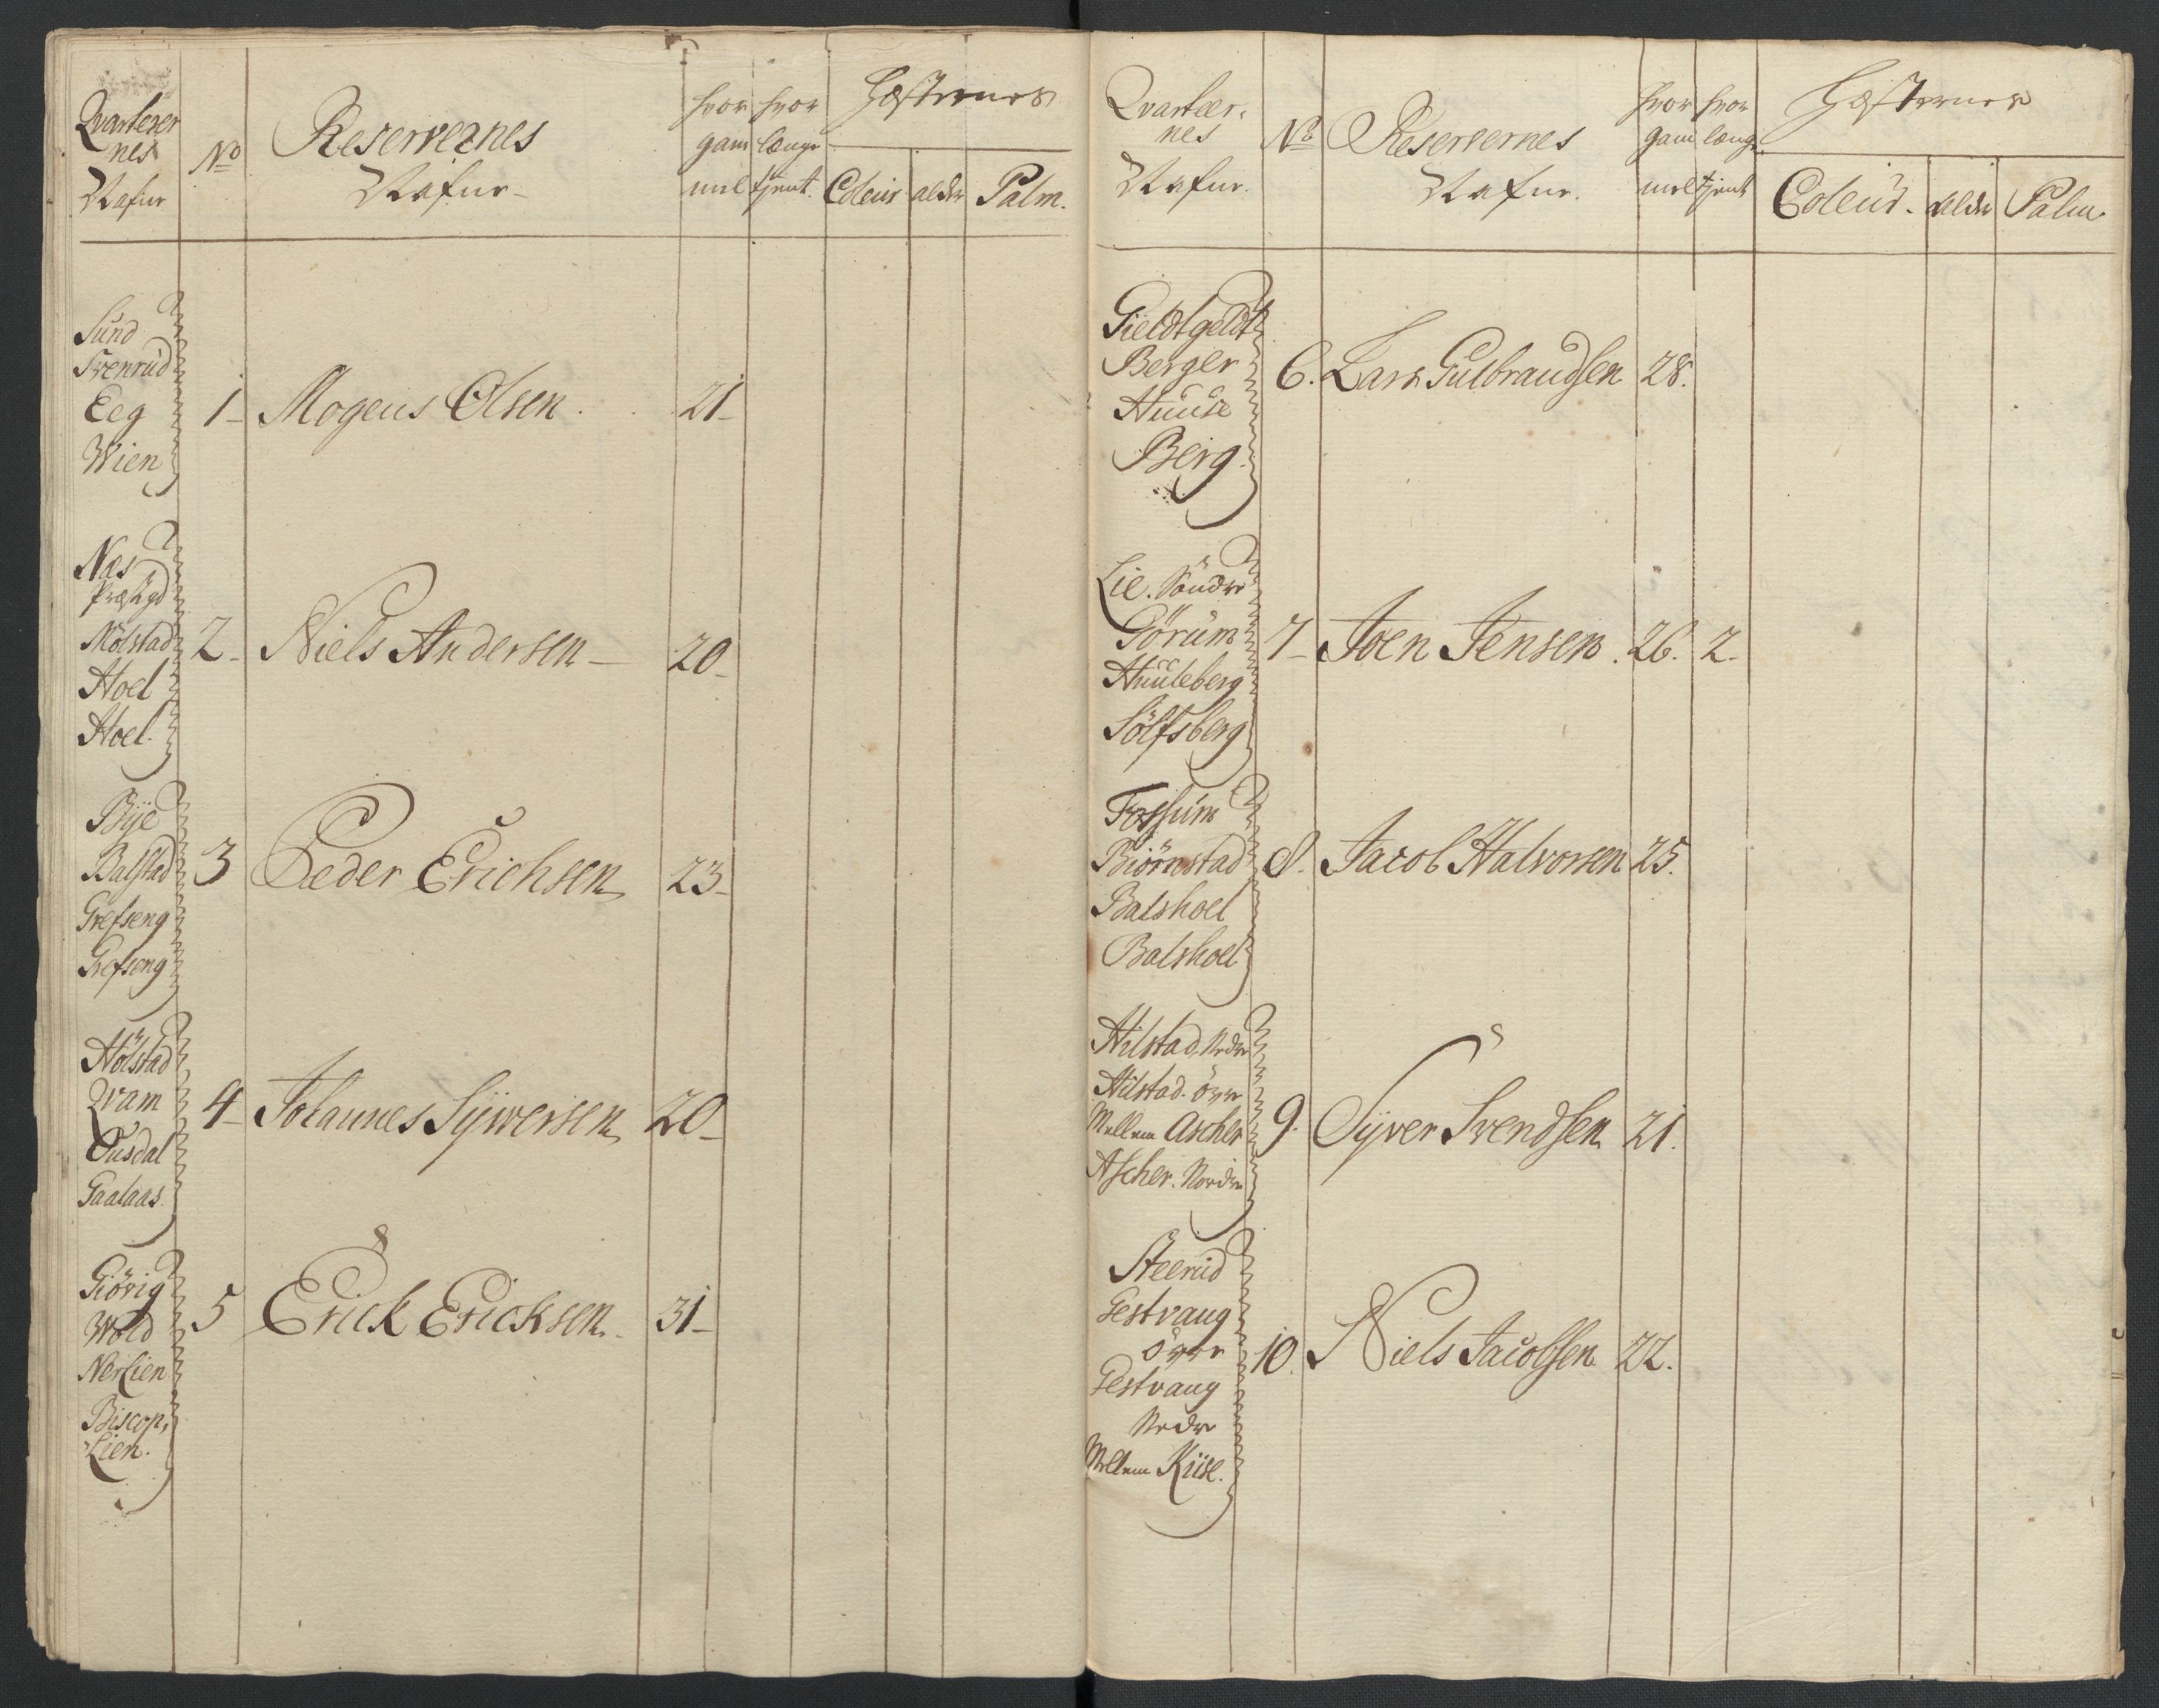 Qvarterer
nes
Nafne
No
Reservernes
Nafne
hvor
gam
mel
hvor
længe
tjent.
Hesternes
Coleur
alder
Palm.
Sund
Svenrud
Eeg
Wien
1 Mogens Olsen. 21
Næs
Præstgd
Mölstad
Hoel
Hoel.
2 Niels Andersen 20
Bÿe
Balstad
Grefseng
Grefseng
3 Peder Erichsen 23
Hölstad
Qvam
Ousdal
Gaalaas.
4 Johannes Sÿwersen 20
Giövig
Wold
Nerlien
Biscop,
Lien.
5 Erick Ericksen 31
Qvarteer,
nes
Nafne.
No
Reservernes
Nafne.
hvor
gam
mel
hvor
længe
tjent
Hesternes
Coleur.
alder
Palm.
Gieldtgeldt
Berger
Huuse
Berg.
6. Lars Gulbrandsen 28.
Lie. Söndre
Görum
Huuleberg
Sölfsberg
7 Joen Jensen. 26. 2
Fossum
Biörnstad
Balshoel
Balshoel
8. Jacob Halvorsen 25.
Hilstad, Nedre
Hilstad. övre
Mellem Ascher
Ascher. Nordre
9. Sÿver Svendsen 21.
Steerud
Gestvang
övre
Gestvang
Nedre
Mellem Kiise.
10. Niels Jacobsen 22.